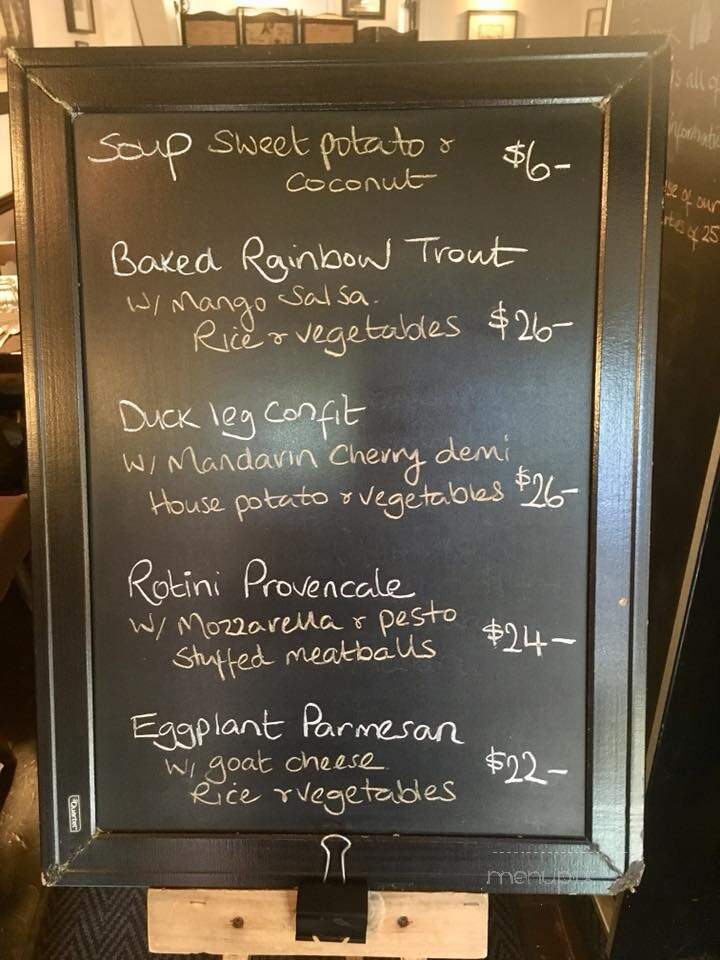 Soup Sweet potato &
coconut $6-
Baked Rainbow Trout
w/ Mango Salsa.
Rice & vegetables $26-
Duck leg confit
w/ Mandarin Cherry demi
House potato & vegetables $26-
Rotini Provencale
w/ Mozzarella & pesto
Stuffed meatballs $24-
Eggplant Parmesan
w/ goat cheese
Rice & vegetables $22-
Quartet
menupix
of our
of 25